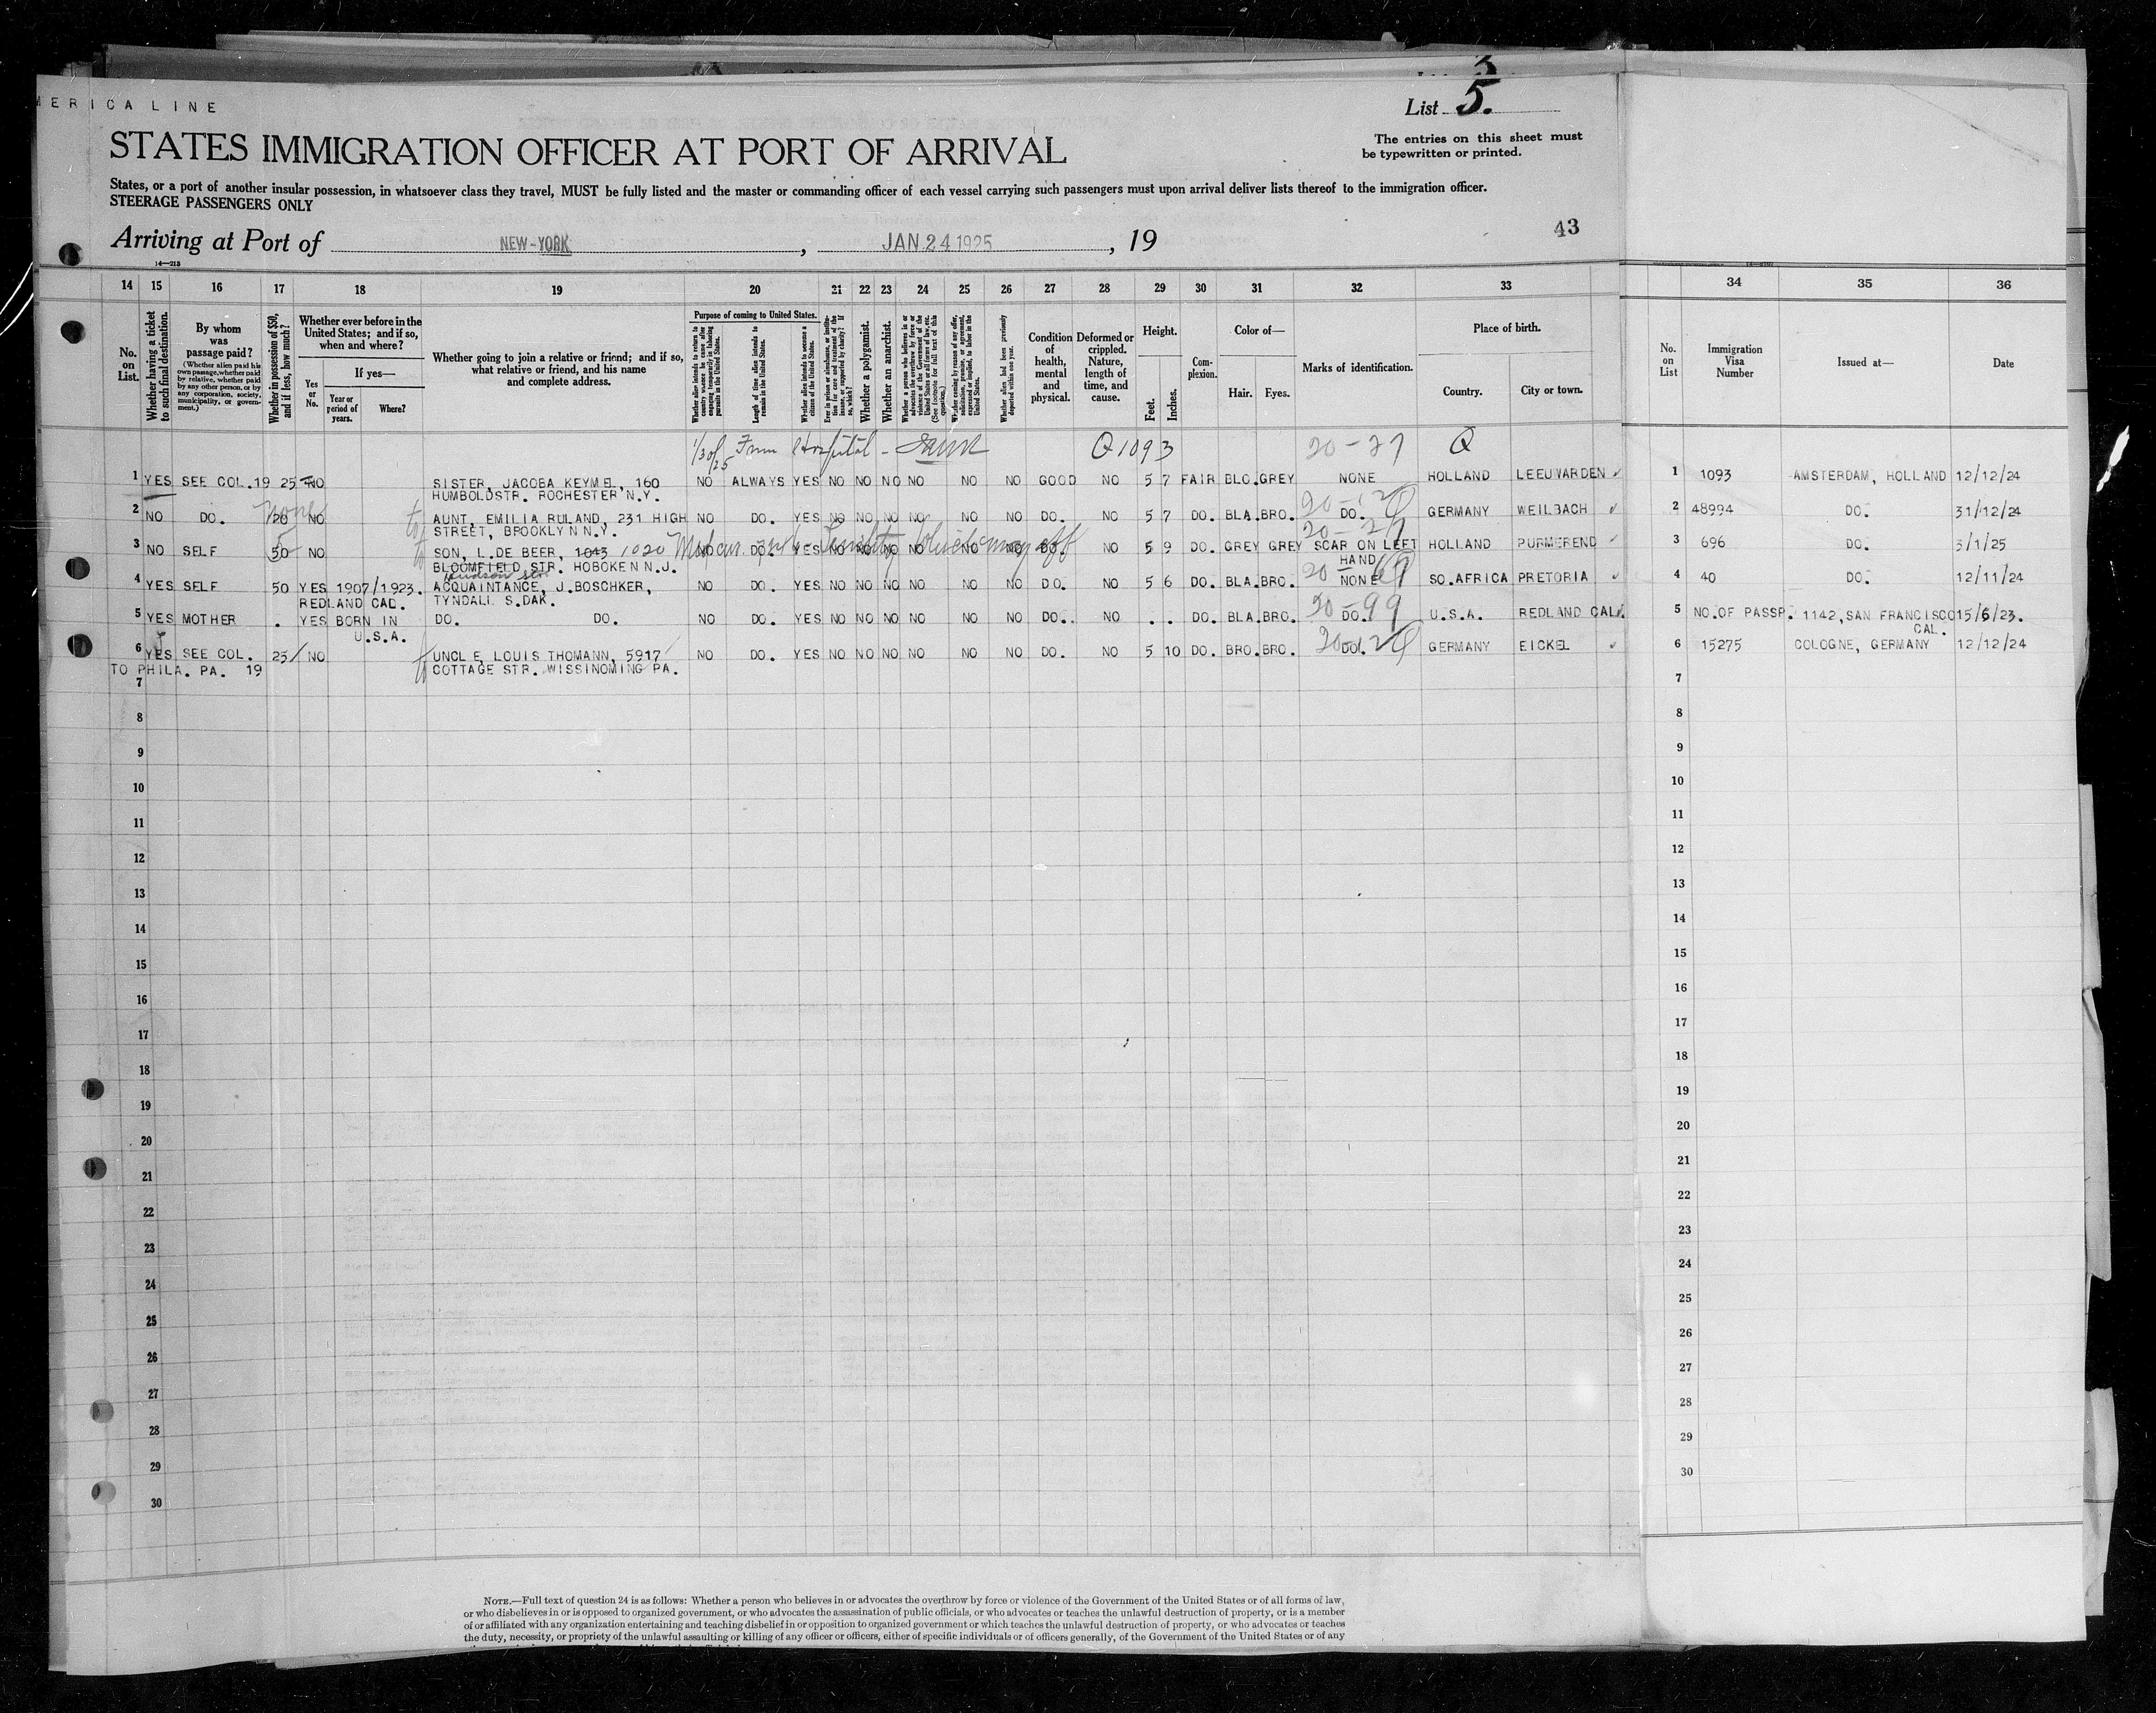 MERICA LINE
List 5.
STATES IMMIGRATION OFFICER AT PORT OF ARRIVAL
The entries on this sheet must
be typewritten or printed.
States, or a port of another insular possession, in whatsoever class they travel, MUST be fully listed and the master or commanding officer of each vessel carrying such passengers must upon arrival deliver lists thereof to the immigration officer.
STEERAGE PASSENGERS ONLY
Arriving at Port of NEW-YORK, JAN 24 1925, 19
43
14—213
14 15 16 17 18 19 20 21 22 23 24 25 26 27 28 29 30 31 32 33 34 35 36
No. on List.
Whether having a ticket to such final destination.
By whom was passage paid?
(Whether alien paid his own passage, whether paid by relative, whether paid by any other person, or by any corporation, society, municipality, or government.)
Whether in possession of $50, and if less, how much?
Whether ever before in the United States; and if so, when and where?
Yes or No.
If yes—
Year or period of years.
Where?
Whether going to join a relative or friend; and if so, what relative or friend, and his name and complete address.
Purpose of coming to United States.
Whether alien intends to return to country whence he came after engaging temporarily in laboring pursuits in the United States.
Length of time alien intends to remain in the United States.
Whether alien intends to become a citizen of the United States.
Ever in prison or almshouse, or institution for care and treatment of the insane, or supported by charity? If so, which?
Whether a polygamist.
Whether an anarchist.
Whether a person who believes in or advocates the overthrow by force or violence of the Government of the United States or all forms of law, etc. (See footnote for full text of this question.)
Whether coming by reason of any offer, solicitation, promise, or agreement, expressed or implied, to labor in the United States.
Whether alien had been previously deported within one year.
Condition of health, mental and physical.
Deformed or crippled. Nature, length of time, and cause.
Height.
Feet. Inches.
Complexion.
Color of—
Hair. Eyes.
Marks of identification.
Place of birth.
Country. City or town.
No. on List
Immigration Visa Number
Issued at—
Date
From Hospital - Q1093 20-27 Q
1 YES SEE COL.19 25 NO SISTER, JACOBA KEYMEL, 160 NO ALWAYS YES NO NO NO NO NO NO GOOD NO 5 7 FAIR BLO. GREY NONE HOLLAND LEEUWARDEN 1 1093 AMSTERDAM, HOLLAND 12/12/24
HUMBOLDSTR. ROCHESTER N.Y.
2 NO DO. 20 NO AUNT, EMILIA RULAND, 231 HIGH NO DO. YES NO NO NO NO NO NO DO. NO 5 7 DO. BLA. BRO. DO. GERMANY WEILBACH 2 48994 DO. 31/12/24
STREET, BROOKLYN N.Y.
3 NO SELF 50 NO SON, L.DE BEER, 1043 1020 NO DO. YES NO NO NO NO NO NO DO. NO 5 9 DO. GREY GREY SCAR ON LEFT HOLLAND PURMEREND 3 696 DO. 3/1/25
BLOOMFIELD STR. HOBOKEN N.J. HAND
Hudson str.
4 YES SELF 50 YES 1907/1923. ACQUAINTANCE, J.BOSCHKER, NO DO. YES NO NO NO NO NO NO DO. NO 5 6 DO. BLA. BRO. NONE SO.AFRICA PRETORIA 4 40 DO. 12/11/24
REDLAND CAD. TYNDALL S.DAK.
20-99
5 YES MOTHER . YES BORN IN DO. DO. NO DO. YES NO NO NO NO NO NO DO.. NO . . DO. BLA. BRO. DO. U.S.A. REDLAND CAL. 5 NO.OF PASSP. 1142, SAN FRANCISCO 15/6/23.
U.S.A. CAL.
6 YES SEE COL. 25 NO UNCLE, LOUIS THOMANN, 5917 NO DO. YES NO NO NO NO NO NO DO. NO 5 10 DO. BRO. BRO. DO. GERMANY EICKEL 6 15275 COLOGNE, GERMANY 12/12/24
TO PHILA. PA. 19 COTTAGE STR. WISSINOMING PA.
7 7
8 8
9 9
10 10
11 11
12 12
13 13
14 14
15 15
16 16
17 17
18 18
19 19
20 20
21 21
22 22
23 23
24 24
25 25
26 26
27 27
28 28
29 29
30 30
NOTE.—Full text of question 24 is as follows: Whether a person who believes in or advocates the overthrow by force or violence of the Government of the United States or of all forms of law,
or who disbelieves in or is opposed to organized government, or who advocates the assassination of public officials, or who advocates or teaches the unlawful destruction of property, or is a member
of or affiliated with any organization entertaining and teaching disbelief in or opposition to organized government or which teaches the unlawful destruction of property, or who advocates or teaches
the duty, necessity, or propriety of the unlawful assaulting or killing of any officer or officers, either of specific individuals or of officers generally, of the Government of the United States or of any